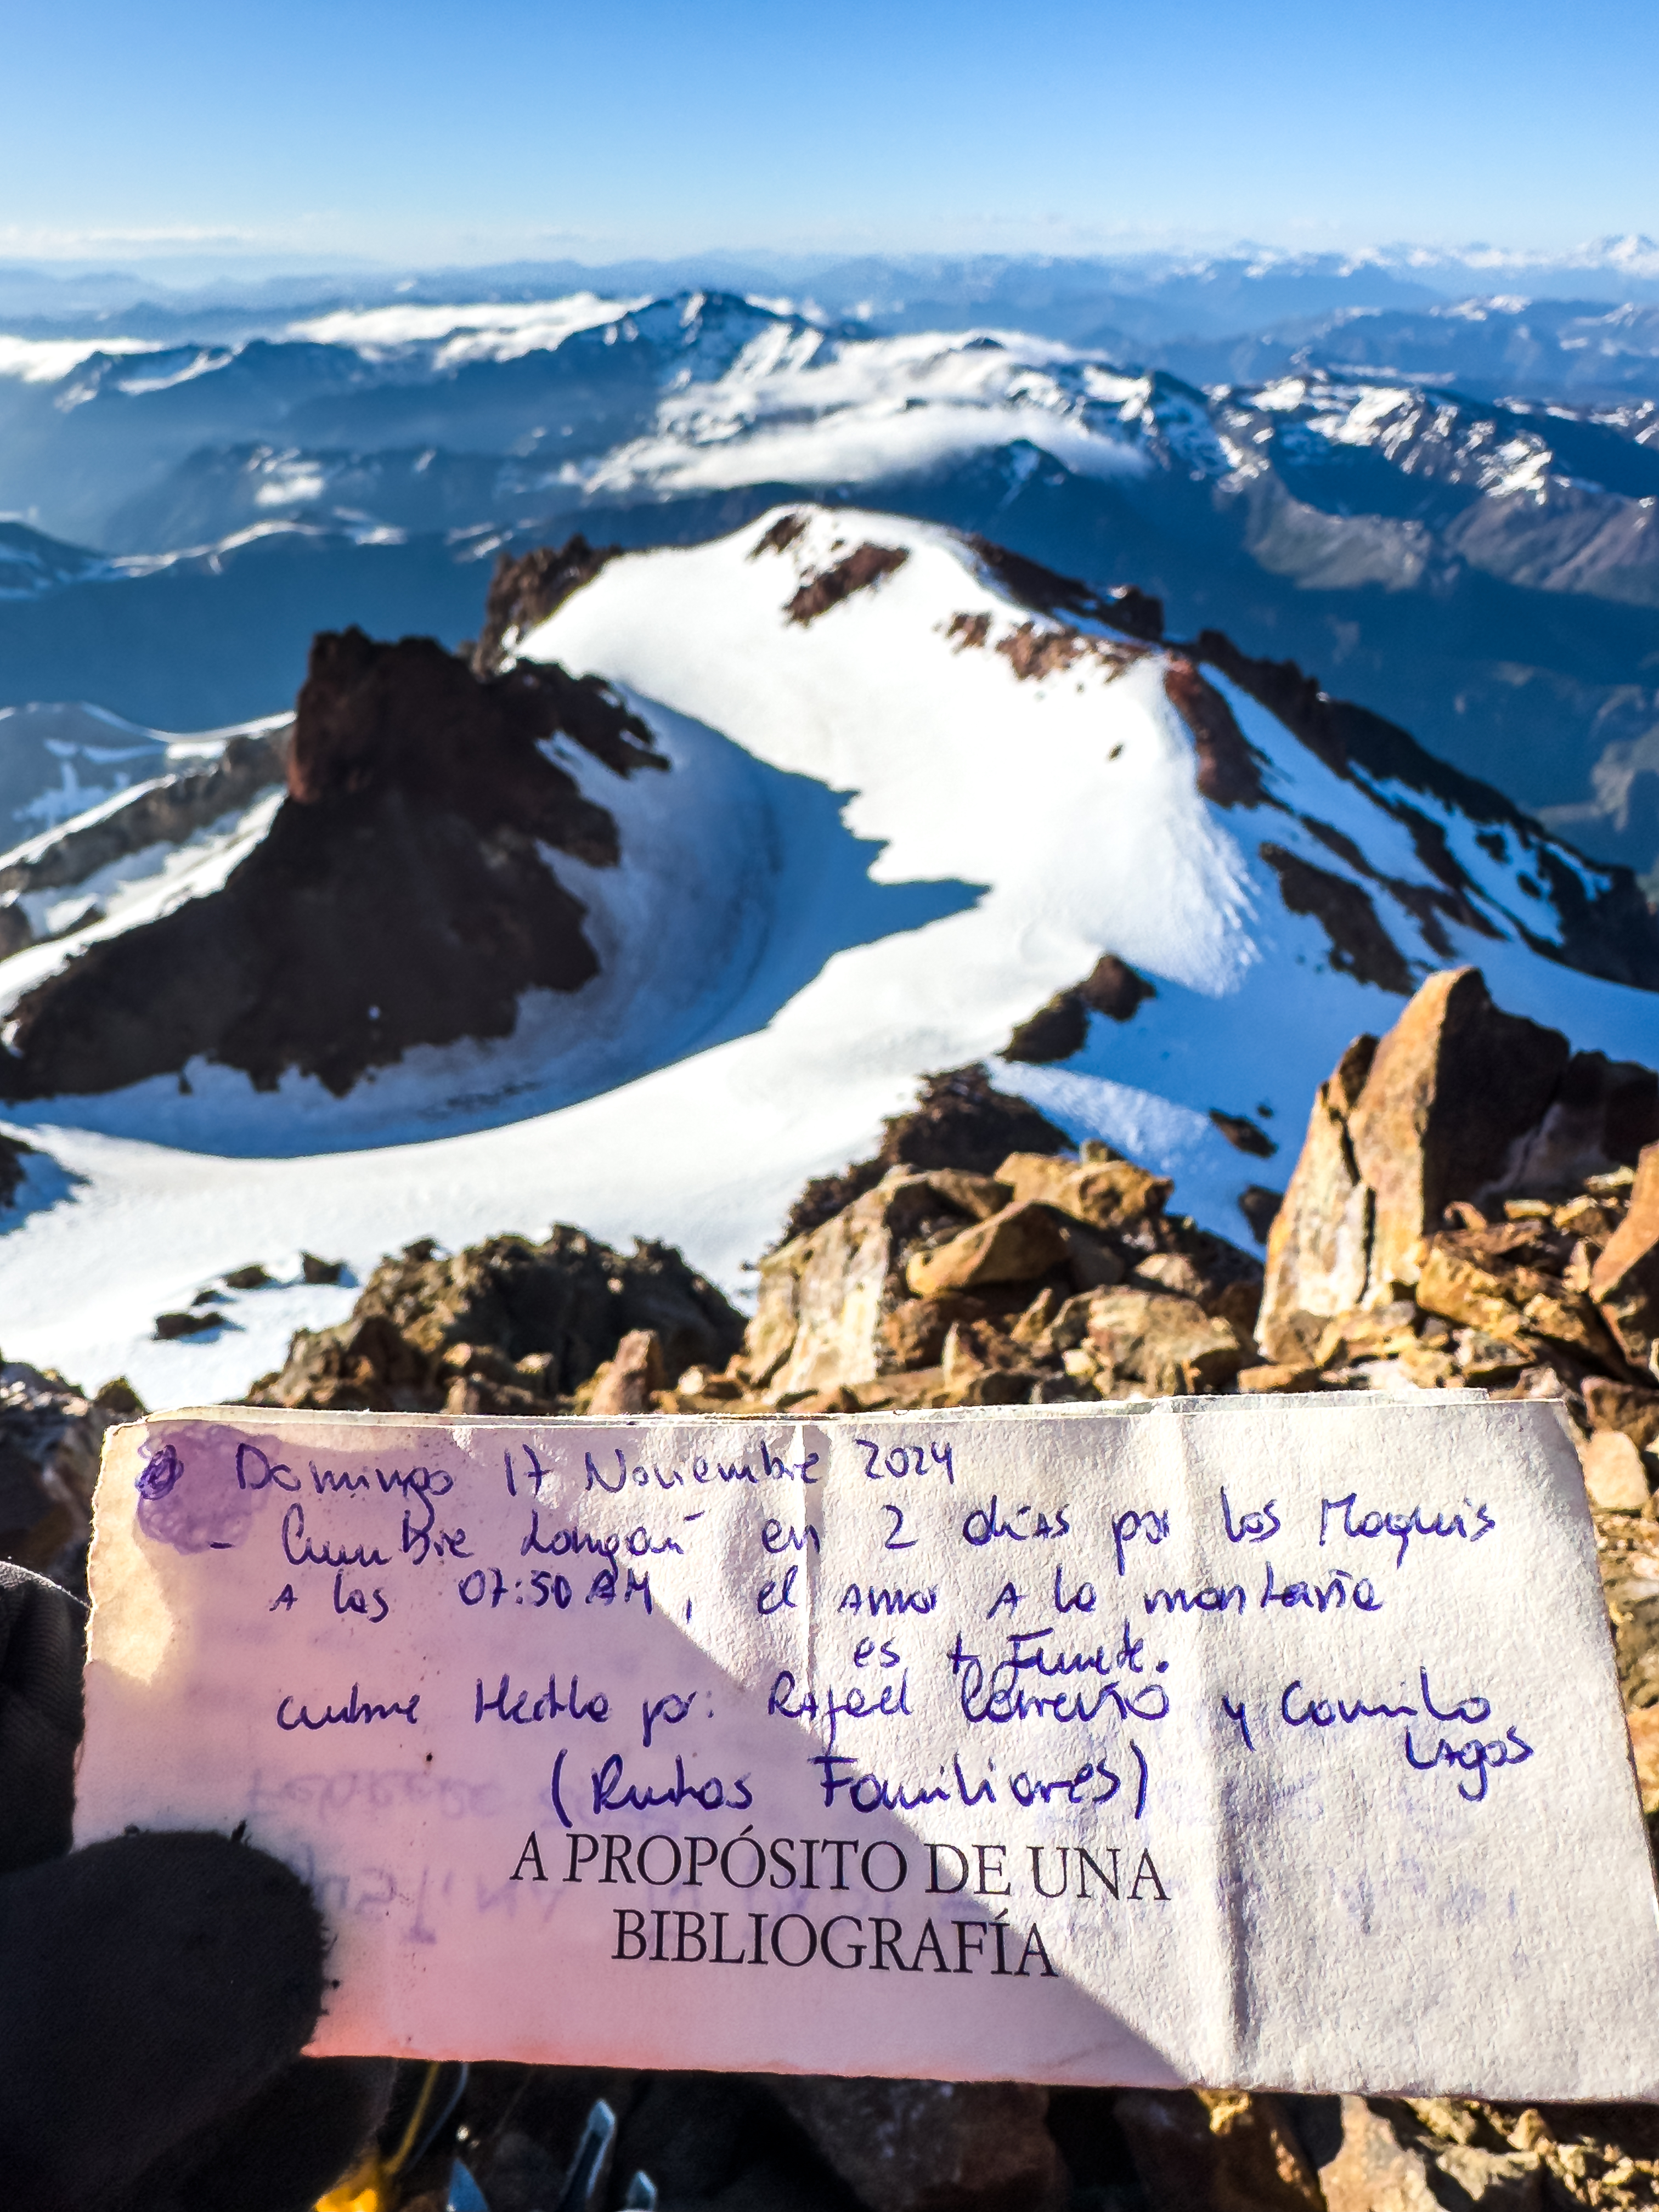 Domingo 17 Noviembre 2024
- Cumbre Longaví en 2 días por los Maquis
A las 07:50 AM, el amor A la montaña
es + Fuerte.
cumbre Hecha por: Rafael Carreño y Camilo
Lagos
(Rutas Familiares)
A PROPÓSITO DE UNA
BIBLIOGRAFÍA